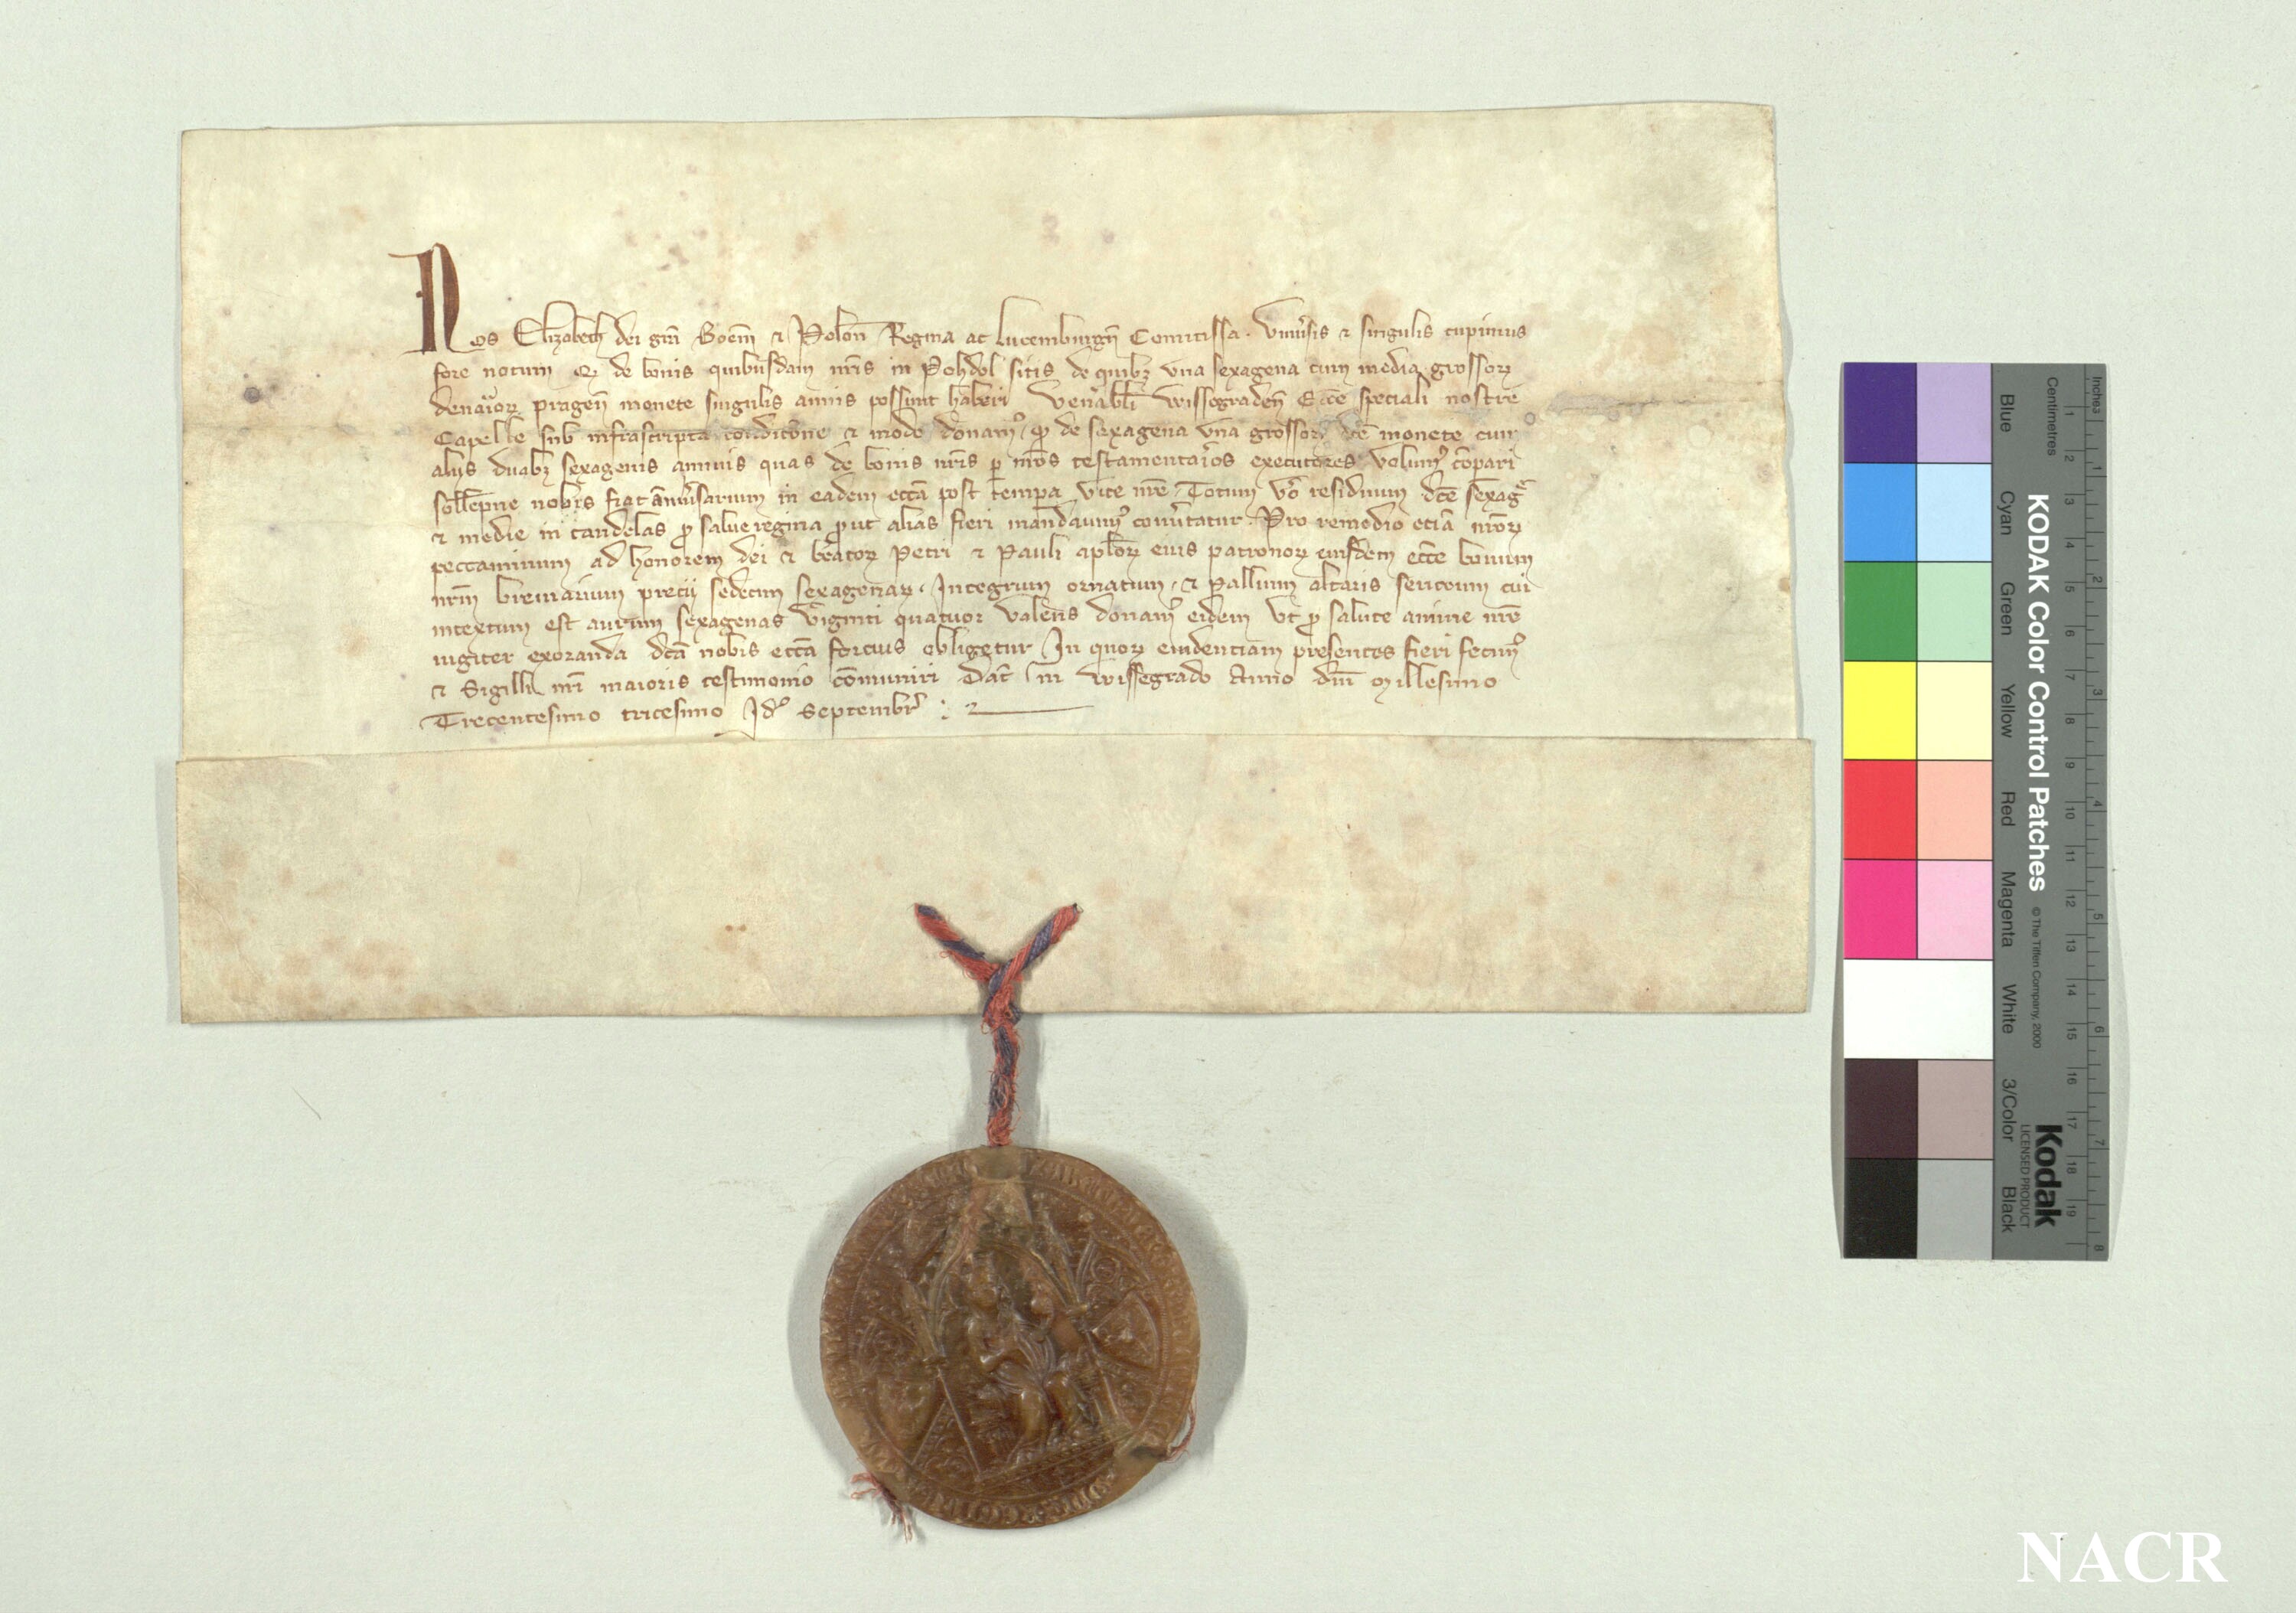 Nos Elizabeth dei gra Boem et Polon Regina ac Lucemburgn Comitissa . Univsis et singulis cupimus
fore notum qd de bonis quibusdam nris in Pohdol sitis de quibz una sexagena cum media grossorz
denariorz pragen monete singulis annis possunt haberi Venabili Wissegraden Eccle speciali nostre
Capelle sub infrascripta condicone et modo donamus , qd de sexagena una grossorz dce monete cum
aliis duabz sexagenis annuis quas de bonis nris p nros testamentarios executores volumus compari
sollempne nobis fiat annivsarium in eadem eccla post tempa vite nre . Totum vo residuum dce sexage
et medie in candelas pro salve regina prout alias fieri mandavimus convertatur . Pro remedio eciam nrorz
peccaminum ad honorem dei et beatorz Petri et Pauli aplorz eius patronorz eiusdem eccle bonum
nrm breviarium precii sedecim sexagenarz . Integrum ornatum . et pallium altaris sericeum cui
intextum est aurum sexagenas viginti quatuor valens donamus eidem ut pro salute anime nre
iugiter exoranda dcta nobis eccla forcius obligetur In quorz evidenciam presentes fieri fecimus
et Sigilli nri maioris testimonio comuniri Dat in Wissegrado Anno dni Millesimo
Trecentesimo tricesimo Idus Septembr
KODAK Color Control Patches
© The Tiffen Company, 2000
Kodak
LICENSED PRODUCT
Inches
Centimetres
1 2 3 4 5 6 7 8 9 10 11 12 13 14 15 16 17 18 19
1 2 3 4 5 6 7 8
Blue Cyan Green Yellow Red Magenta White 3/Color Black
NACR